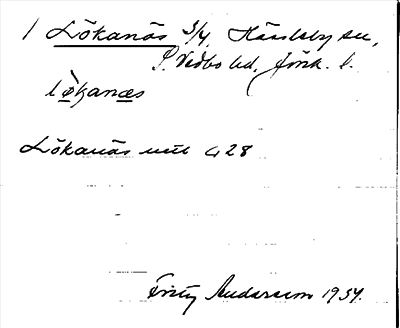 1 Lökanäs 3/4, Hässleby sn,
S. Vedbo hd, Jönk. l.
lø̀kanæs
Lökanäs mtl 428
Fritz Andersson 1934.